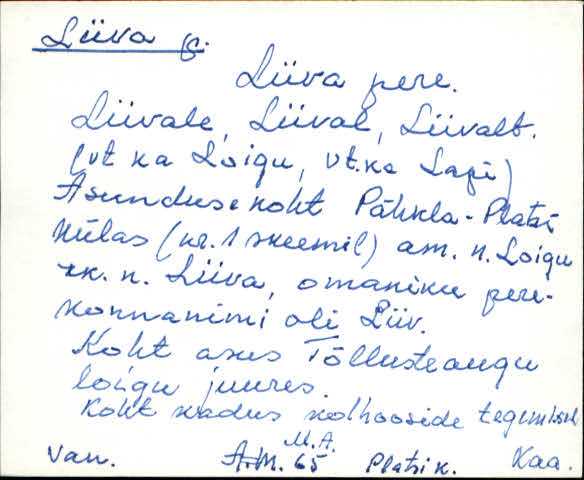 Liiva
Liiva pere.
Liivale, Liival, Liivalt.
(vt ka Loigu, vt. ka Lapi)
Asundusekoht Pähkla-Platsi
külas (nr. 1 skeemil) am. n. Loigu
rk. n. Liiva, omaniku pere-
konnanimi oli Liiv.
Koht asus Tõllusteaugu
loigu juures.
Koht kadus kolhooside tegemisel
M.A.
Van. A.M. 65 Platsi k. Kaa.